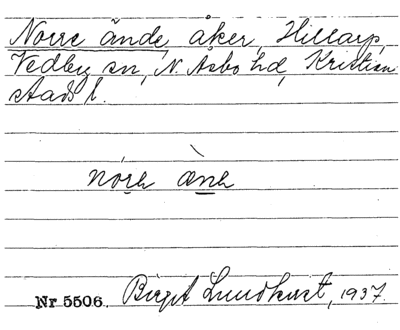 Norre ände, åker, Hillarp,
Vedby sn, N. Åsbo hd, Kristian
stads l.
Nr 5506. Birgit Lundkvist, 1937.